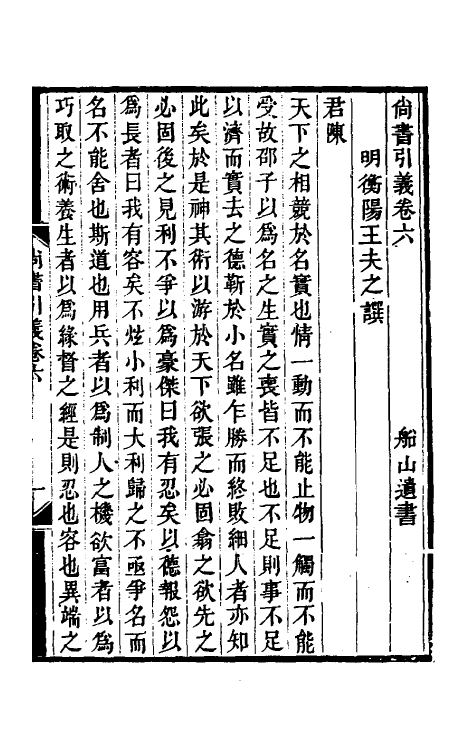 尙書引義卷六　船山遺書
明衡陽王夫之譔
君陳
天下之相競於名實也情一動而不能止物一觸而不能
受故邵子以爲名之生實之喪皆不足也不足則事不足
以濟而實去之德靳於小名雖乍勝而終敗細人者亦知
此矣於是神其術以游於天下欲張之必固翕之欲先之
必固後之見利不爭以爲豪傑曰我有忍矣以德報怨以
爲長者曰我有容矣不炫小利而大利歸之不亟爭名而
名不能舍也斯道也用兵者以爲制人之機欲富者以爲
巧取之術養生者以爲緣督之經是則忍也容也異端之
尙書引義卷六　一